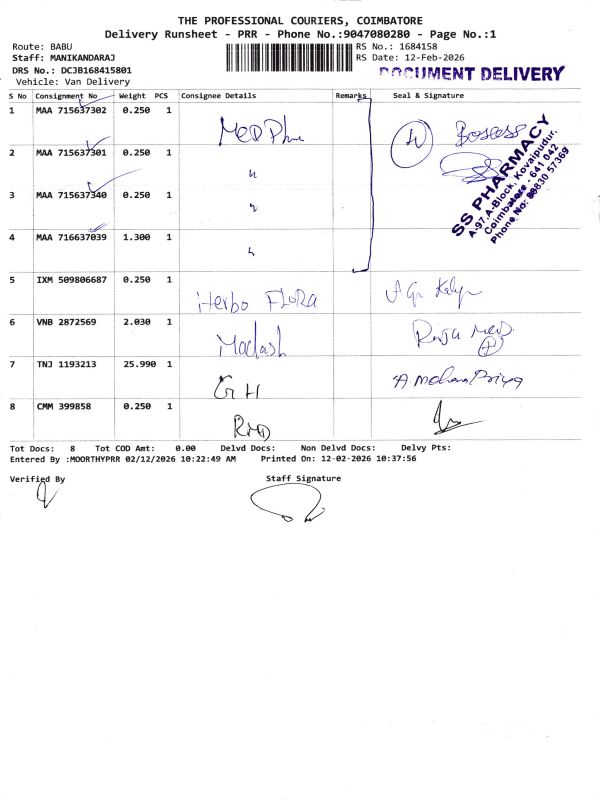 THE PROFESSIONAL COURIERS, COIMBATORE
Delivery Runsheet - PRR - Phone No.:9047080280 - Page No.:1
Route: BABU
Staff: MANIKANDARAJ
DRS No.: DCJB168415801
Vehicle: Van Delivery
RS No.: 1684158
RS Date: 12-Feb-2026
DOCUMENT DELIVERY
S No Consignment No Weight PCS Consignee Details Remarks Seal & Signature
1 MAA 715637302 0.250 1
2 MAA 715637301 0.250 1 "
3 MAA 715637340 0.250 1 "
4 MAA 716637039 1.300 1 "
SS PHARMACY
A-97, A-Block, Kovaipudur,
Coimbatore - 641 042
Phone No: 88830 57369
5 IXM 509806687 0.250 1 Herbo Flora
6 VNB 2872569 2.030 1 Madash
7 TNJ 1193213 25.990 1 G H A Mohana Priya
8 CMM 399858 0.250 1
Tot Docs: 8 Tot COD Amt: 0.00 Delvd Docs: Non Delvd Docs: Delvy Pts:
Entered By :MOORTHYPRR 02/12/2026 10:22:49 AM Printed On: 12-02-2026 10:37:56
Verified By Staff Signature